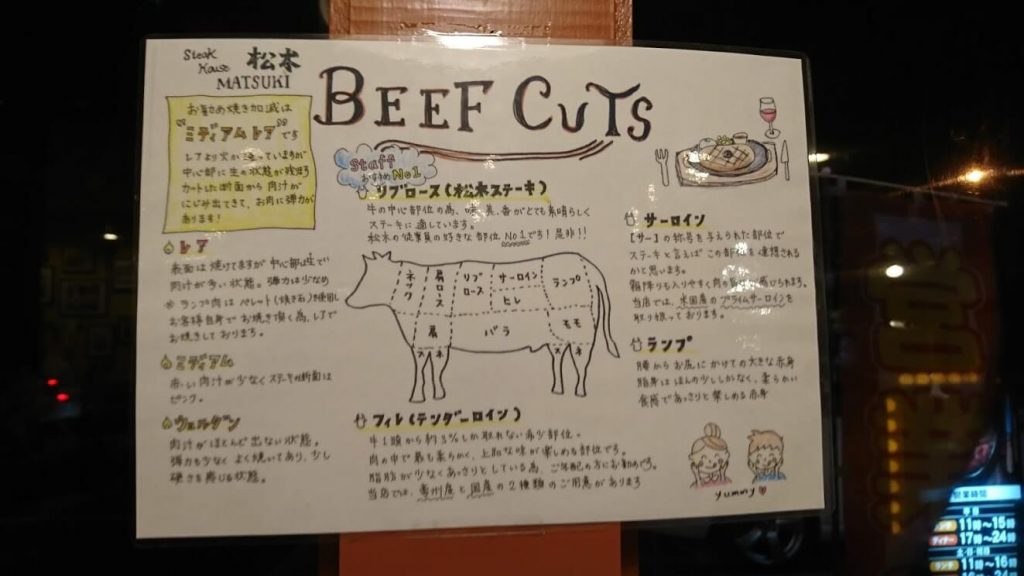 Steak House 松木
MATSUKI
BEEF CUTS
お勧め焼き加減は
"ミディアムレア"です
レアより火が通っていますが
中心部に生の状態が残り
カットした断面から肉汁が
にじみ出てきて、お肉に弾力が
あります!
レア
表面は焼けてますが中心部は生で
肉汁が多い状態。弾力は少なめ
※ランプ肉はペレット(焼き石)を使用し
お客様自身でお焼き頂く為、レアで
お焼きしております。
ミディアム
赤い肉汁が少なくステーキの断面は
ピンク。
ウェルダン
肉汁がほとんど出ない状態。
弾力も少なくよく焼いてあり、少し
硬さを感じる状態。
Staff
おすすめNo1
リブロース(松木ステーキ)
牛の中心部位の為、味、見、香がとても素晴らしく
ステーキに適しています。
松木の従業員の好きな部位No1です!是非!!
ネック
肩ロース
リブロース
サーロイン
ヒレ
ランプ
肩
バラ
モモ
スネ
スネ
フィレ(テンダーロイン)
牛1頭から約3%しか取れない希少部位。
肉の中で最も柔らかく、上品な味が楽しめる部位です。
脂肪が少なくあっさりとしている為、ご年配の方にお勧めです。
当店では、豪州産と国産の2種類のご用意があります
サーロイン
【サー】の称号を与えられた部位で
ステーキと言えばこの部位を連想される
かと思います。
霜降りも入りやすく肉の旨みが感じられます。
当店では、米国産のプライムサーロインを
取り扱っております。
ランプ
腰からお尻にかけての大きな赤身
脂身はほんの少ししかなく、柔らかい
食感であっさりと楽しめる赤身
yummy
営業時間
ランチ 11時~15時
ディナー 17時~24時
土・日・祝日
ランチ 11時~16時